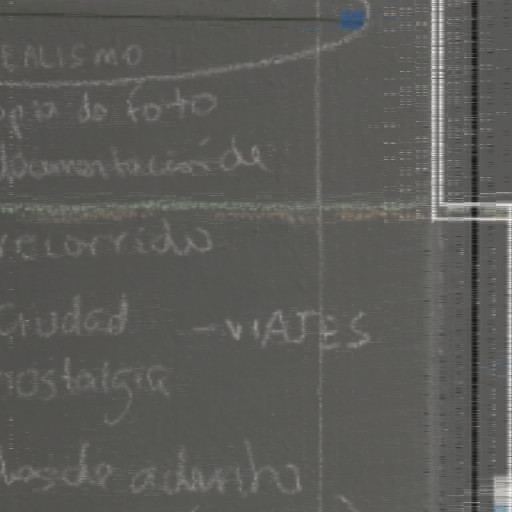 EALISMO
opia de foto
documentación de
recorrido
Ciudad - VIAJES
nostalgia
desde adentro